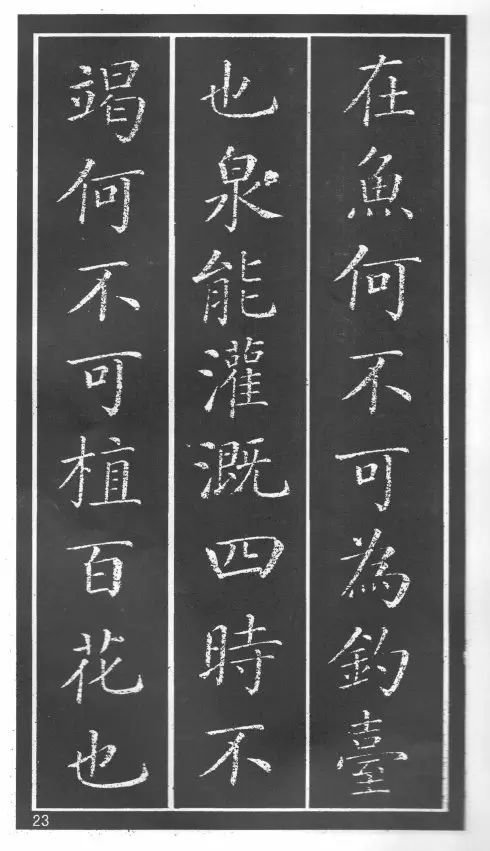 在魚何不可為釣臺
也泉能灌溉四時不
竭何不可植百花也
23